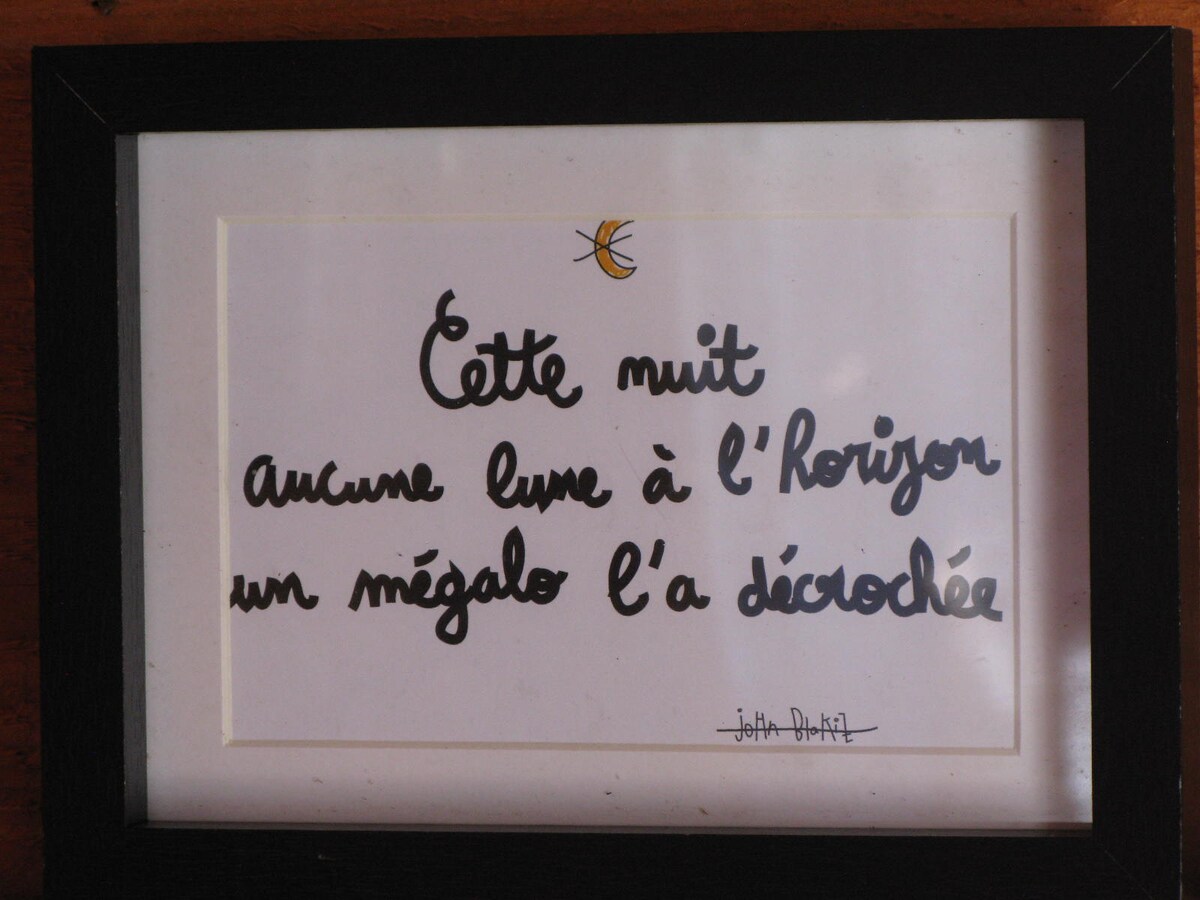 Cette nuit
aucune lune à l'horizon
un mégalo l'a décrochée
joHn BlaKiZ